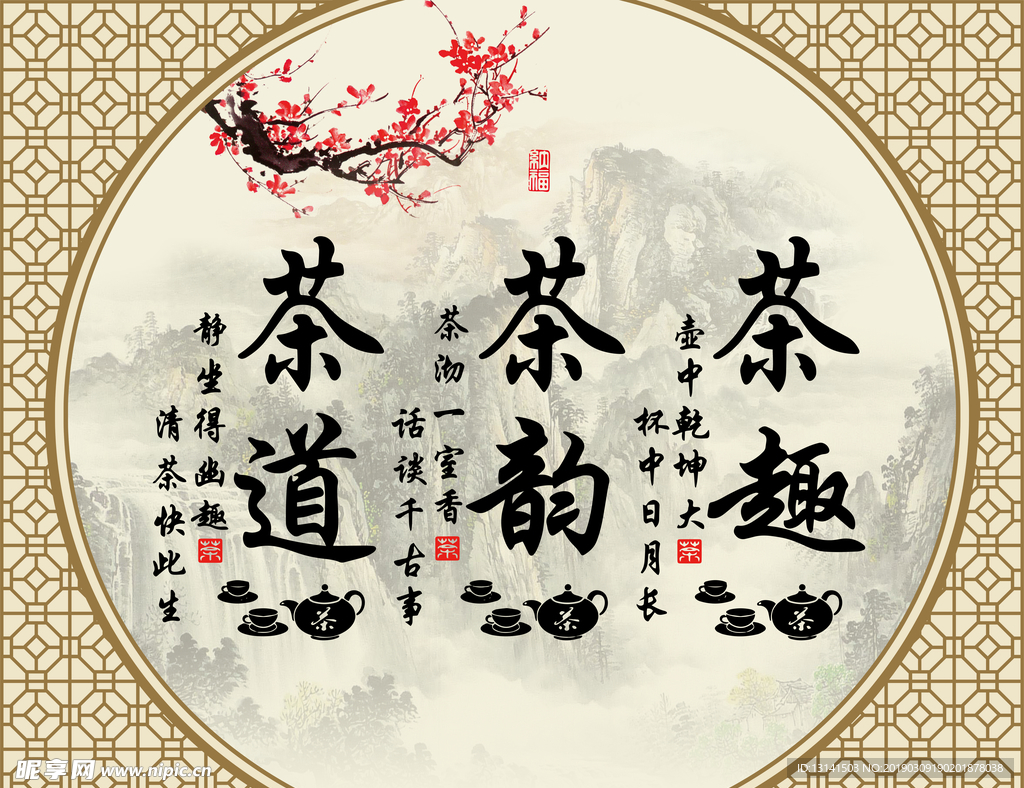 納福
茶趣
壶中乾坤大
杯中日月长
茶
茶
茶韵
茶沏一室香
话谈千古事
茶
茶
茶道
静坐得幽趣
清茶快此生
茶
茶
昵享网 www.nipic.cn
ID:13141503 NO:20190309190201878038